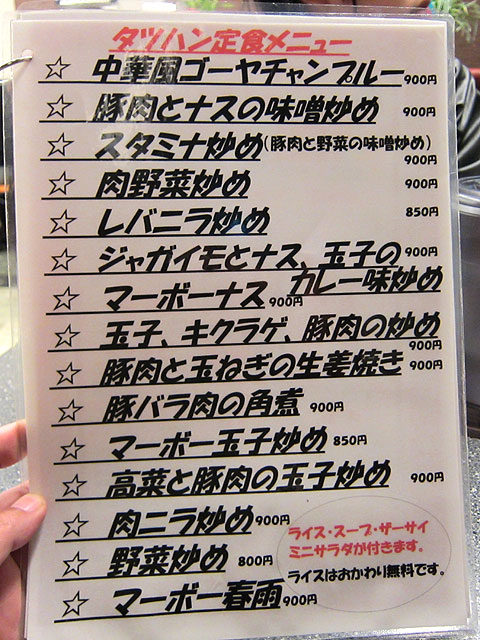 タツハン定食メニュー
☆ 中華風ゴーヤチャンプルー 900円
☆ 豚肉とナスの味噌炒め 900円
☆ スタミナ炒め(豚肉と野菜の味噌炒め) 900円
☆ 肉野菜炒め 900円
☆ レバニラ炒め 850円
☆ ジャガイモとナス、玉子の 900円
カレー味炒め
☆ マーボーナス 900円
☆ 玉子、キクラゲ、豚肉の炒め 900円
☆ 豚肉と玉ねぎの生姜焼き 900円
☆ 豚バラ肉の角煮 900円
☆ マーボー玉子炒め 850円
☆ 高菜と豚肉の玉子炒め 900円
☆ 肉ニラ炒め 900円
☆ 野菜炒め 800円
☆ マーボー春雨 900円
ライス・スープ・ザーサイ
ミニサラダが付きます。
ライスはおかわり無料です。